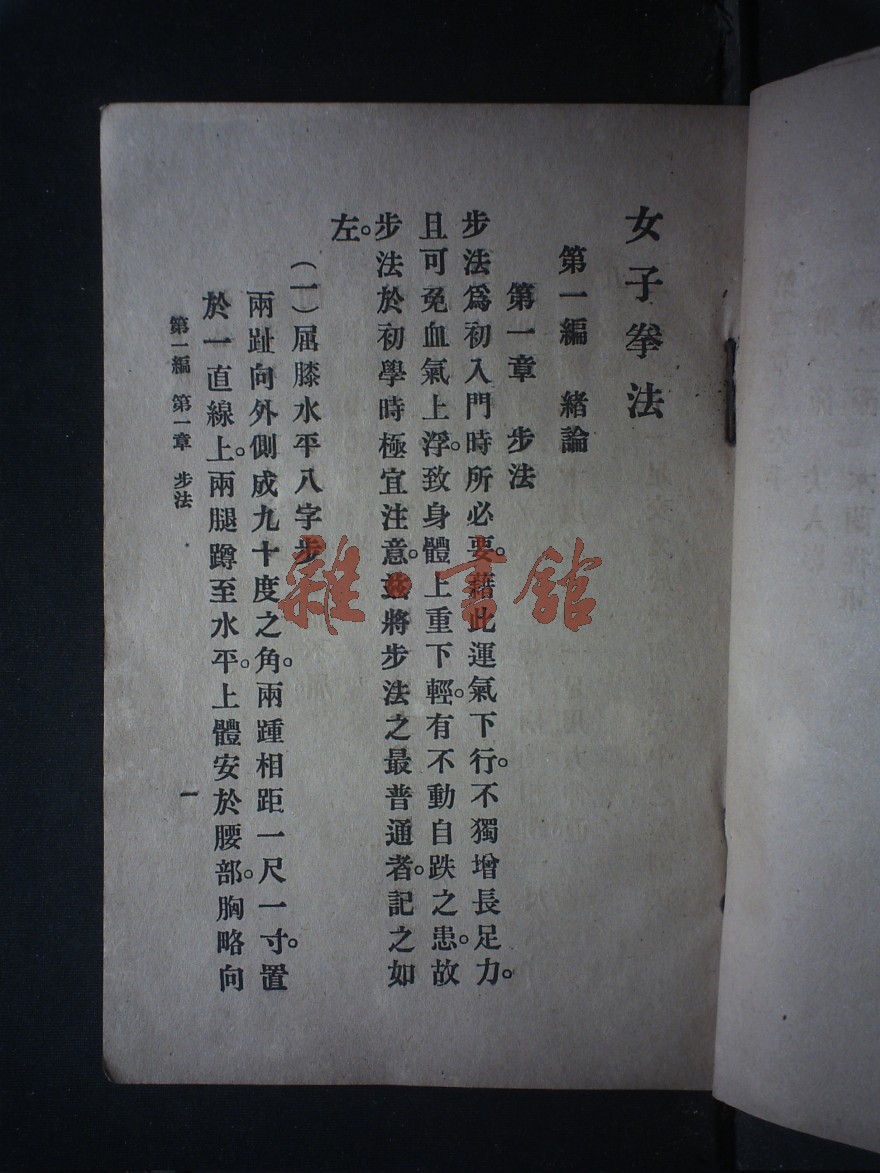 女子拳法
第一編 緒論
第一章 步法
步法爲初入門時所必要。藉此運氣下行。不獨增長足力。
且可免血氣上浮。致身體上重下輕。有不動自跌之患。故
步法於初學時極宜注意。茲將步法之最普通者。記之如
左。
(一)屈膝水平八字步
兩趾向外側成九十度之角。兩踵相距一尺一寸。置
於一直線上。兩腿蹲至水平。上體安於腰部。胸略向
第一編 第一章 步法
一
雜·書館